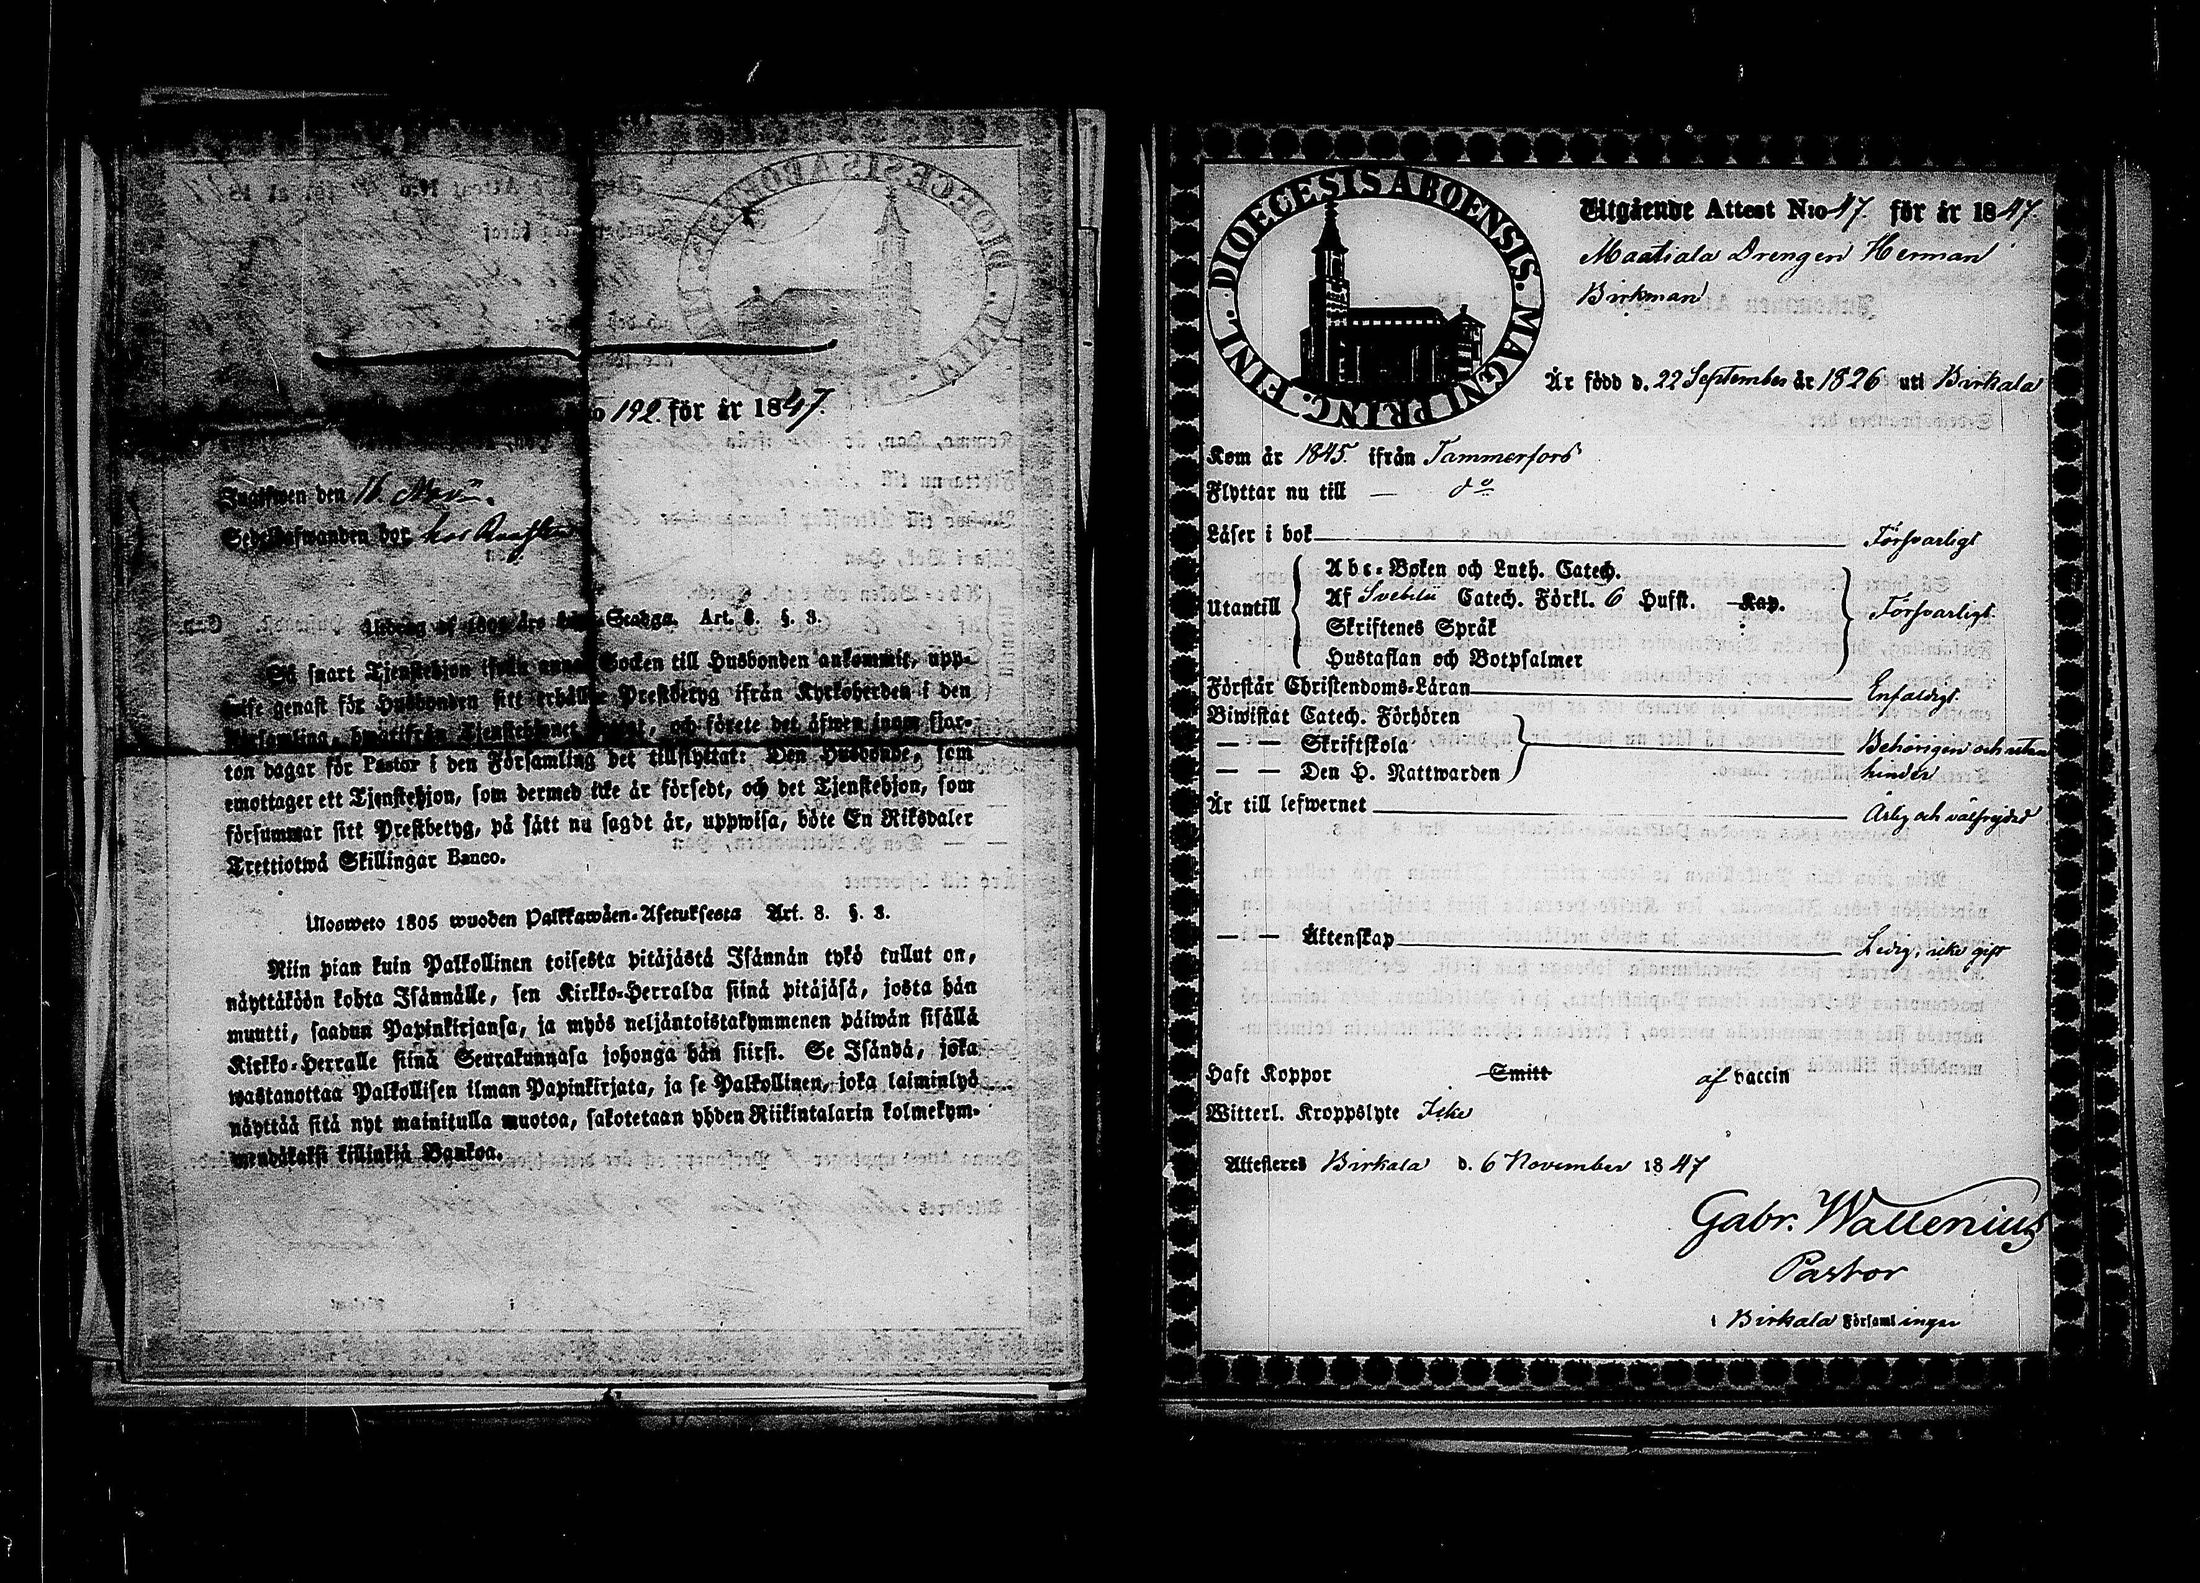 No 192 för år 1847.
Inskrifwen den 16 Nov.
Sedelhafwanden bor hos
Utdrag af 1805 års Lego-Stadga. Art. 8. §. 3.
Så snart Tjenstehjon ifrån annan Socken till Husbonden ankommit, upp-
wise genast för Husbonden sitt erhållne Prestbetyg ifrån Kyrkoherden i den
Församling, hwarifrån Tjenstehjonet flyttat, och förete det äfwen inom fjor-
ton dagar för Pastor i den Församling det tillflyttat: Den Husbonde, som
emottager ett Tjenstehjon, som dermed icke är försedt, och det Tjenstehjon, som
försummar sitt Prestbetyg, på sätt nu sagdt är, uppwisa, böte En Riksdaler
Trettiotwå Skillingar Banco.
Ulosweto 1805 wuoden Palkkawäen-Asetuksesta Art. 8. §. 3.
Niin pian kuin Palkollinen toisesta pitäjästä Isännän tykö tullut on,
näyttäköön kohta Isännälle, sen Kirkko-Herralda siinä pitäjäsä, josta hän
muutti, saadun Papinkirjansa, ja myös neljäntoistakymmenen päiwän sisällä
Kirkko-Herralle siinä Seurakunnasa johonga hän siirsi. Se Isändä, joka
wastanottaa Palkollisen ilman Papinkirjata, ja se Palkollinen, joka laiminlyö
näyttää sitä nyt mainitulla muotoa, sakotetaan yhden Riikintalarin kolmekym-
mendäkaksi killinkiä Bankoa.
DIOECESIS ABOENSIS. MAGNI PRINC. FINL.
Utgående Attest N:o 47. för år 1847.
Maatiala Drengen Herman
Birkman
Är född d. 22 September år 1826 uti Birkala
Kom år 1845. ifrån Tammerfors
Flyttar nu till — do
Läser i bok Försvarligt
Abc-Boken och Luth. Catech.
Utantill Af Svebilii Catech. Förkl. 6 Hufst. Kap. Försvarligt
Skriftenes Språk
Hustaflan och Botpsalmer
Förstår Christendoms-Läran Enfaldigt
Biwistat Catech. Förhören
— — Skriftskola Behörigen och utan
— — Den H. Nattwarden hinder
Är till lefwernet Ärlig och välfrejdad
— — Äktenskap Ledig, icke gift
Haft Koppor Smitt af vaccin
Witterl. Kroppslyte Icke
Attesteres Birkala d. 6 November 1847
Gabr. Wallenius
Pastor
i Birkala Församlingar